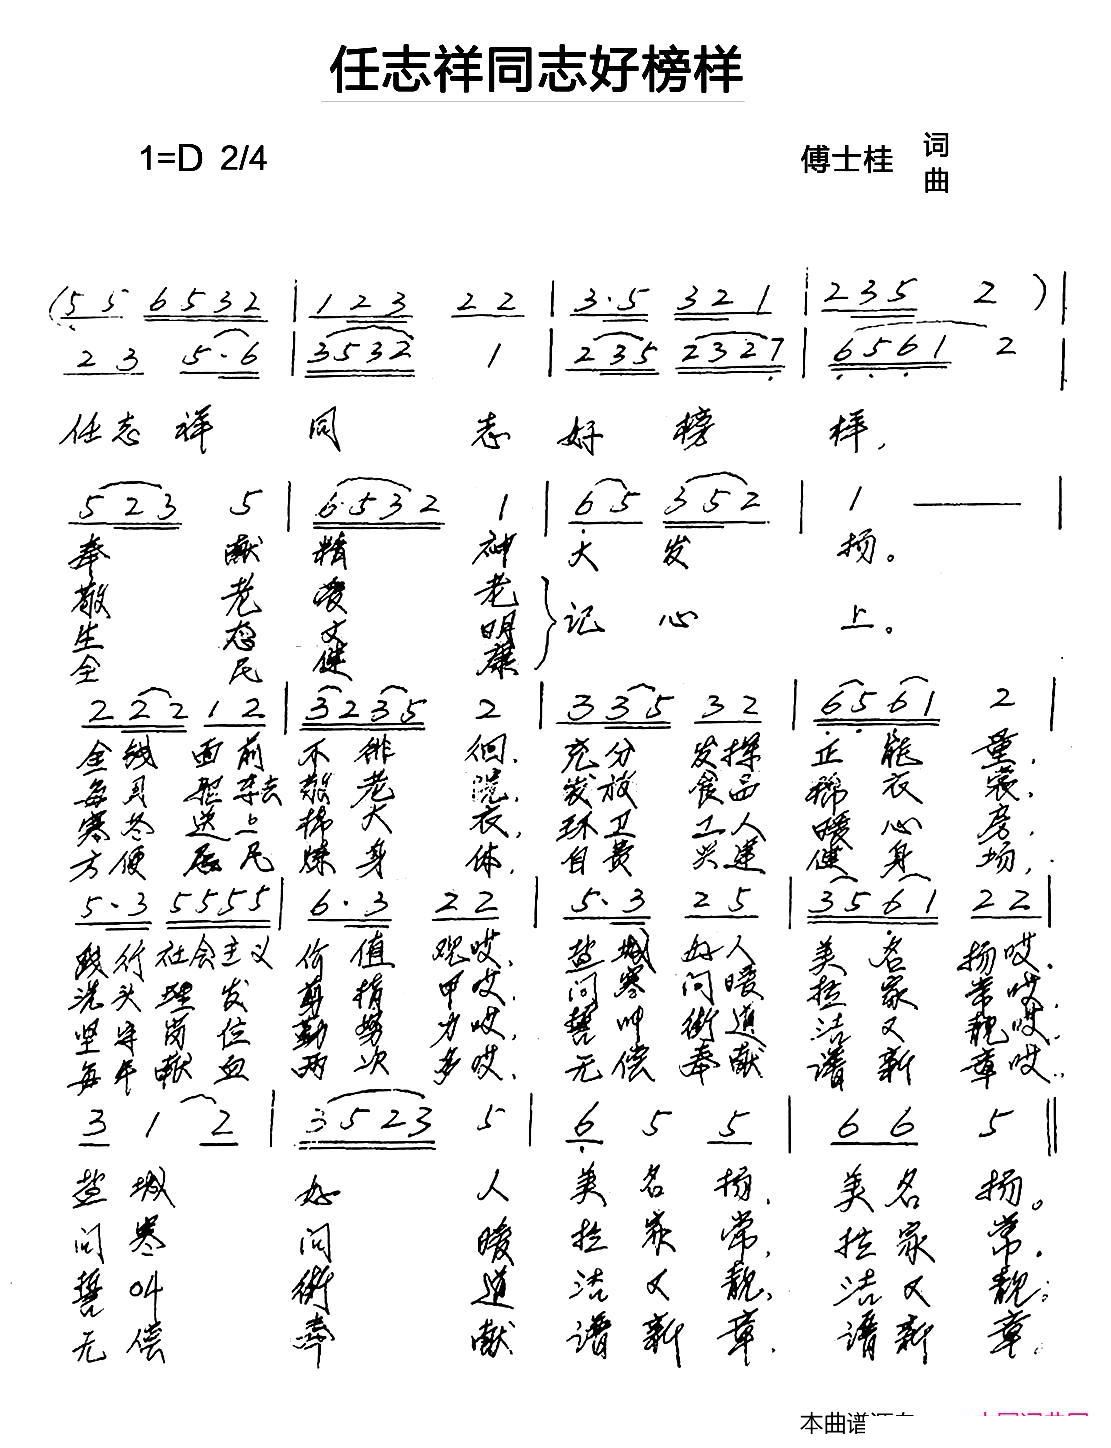 任志祥同志好榜样
1=D 2/4
傅士桂 词
曲
(5 5 6 5 3 2 | 1 2 3 2 2 | 3·5 3 2 1 | 2 3 5 2 ) |
2 3 5·6 | 3 5 3 2 1 | 2 3 5 2 3 2 7 | 6 5 6 1 2 |
任志祥同志好榜样,
5 2 3 5 | 6·5 3 2 1 | 6 5 3 5 2 | 1 — |
奉献精神大发扬。
敬老爱老
生态文明 } 记心上。
全民健康
2 2 2 1 2 | 3 2 3 5 2 | 3 3 5 3 2 | 6 5 6 1 2 |
全线面前不徘徊,充分发挥正能量,
每月 去敬老院,发放食品棉衣裳,
寒冬送上棉大衣,环卫工人暖心房,
方便居民炼身体,自费兴建健身场,
5·3 5 5 5 5 | 6·3 2 2 | 5·3 2 5 | 3 5 6 1 2 2 |
践行社会主义价值观哎,盐城好人美名扬哎.
洗头理发剪指甲哎,问寒问暖拉家常哎.
坚守岗位勤努力哎,誓叫街道洁又靓哎.
每年献血两次多哎,无偿奉献谱新章哎.
3 1 2 | 3 5 2 3 5 | 6 5 5 | 6 6 5 ‖
盐城好人美名扬,美名扬。
问寒问暖拉家常,拉家常.
誓叫街道洁又靓,洁又靓.
无偿奉献谱新章,谱新章.
本曲谱源自